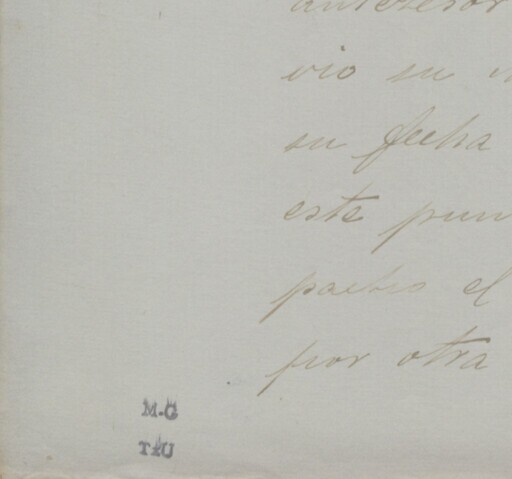 antecesor
vio su
su fecha
este pun
pactro el
por otra
M-G
T±U